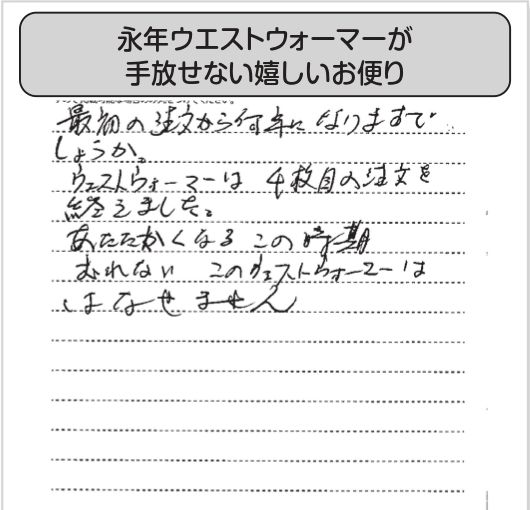 永年ウエストウォーマーが
手放せない嬉しいお便り
最初の注文から何年になりますで
しょうか。
ウェストウォーマーは 4枚目の注文を
終えました。
あたたかくなる この時期
むれない このウェストウォーマーは
はなせません